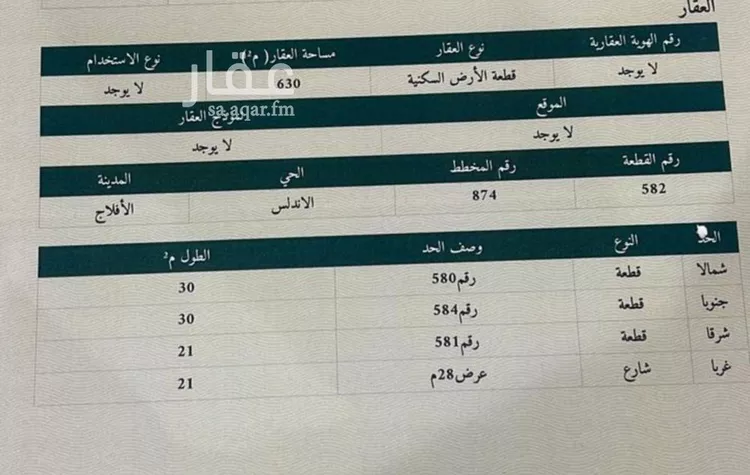 العقار
رقم الهوية العقارية نوع العقار مساحة العقار( م²) نوع الاستخدام
لا يوجد قطعة الأرض السكنية 630 لا يوجد
عقار
sa.aqar.fm
الموقع نموذج العقار
لا يوجد لا يوجد
رقم القطعة رقم المخطط الحي المدينة
582 874 الاندلس الأفلاج
الحد النوع وصف الحد الطول م²
شمالا قطعة رقم580 30
جنوبا قطعة رقم584 30
شرقا قطعة رقم581 21
غربا شارع عرض28م 21